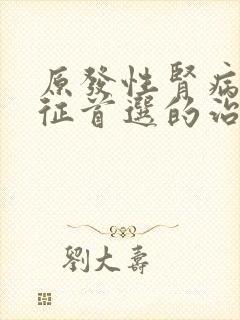 原發性腎病
征首選的治
劉大壽